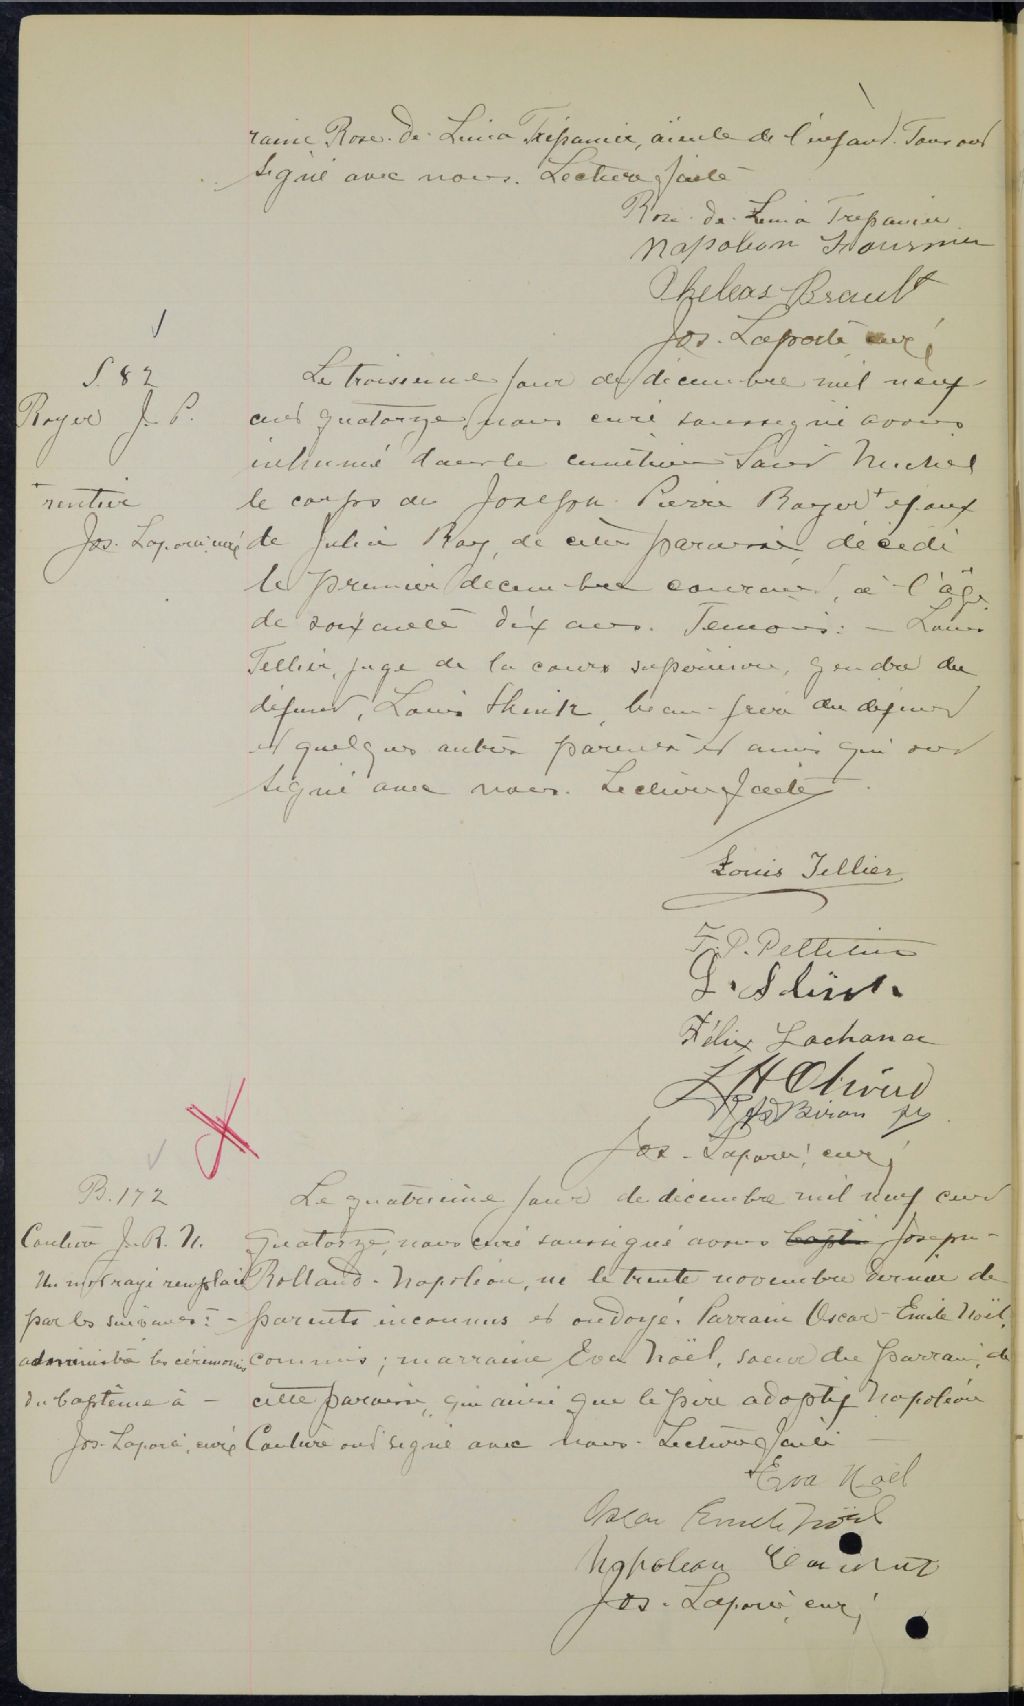 raine Rose-de-Lima Trépanier, aïeule de l'enfant. Tous ont
signé avec nous. Lecture faite
Rose-de-Lima Trepanier
Napoleon Fournier
Pheleas Brault
Jos. Laporte curé
S. 82
Royer J. P.
+ rentier
Jos. Laporte, curé
Le troisieme jour de decembre mil neuf-
cent quatorze, nous curé soussigné avons
inhumé dans le cimetière Saint Michel
le corps de Joseph Pierre Royer + epoux
de Julie Roy, de cette paroisse, décédé
le premier decembre courant, à l'âge
de soixante dix ans. Temoins: - Louis
Tellier, juge de la cour supérieure, gendre du
défunt, Louis Shink, beau-frère du défunt
et quelques autres parents et amis qui ont
signé avec nous. Lecture faite.
Louis Tellier
F. P. Pelletier
L. Shink
Félix Lachance
Biron
Jos. Laporte, curé
B. 172
Couture J. R. N.
Un mot rayé remplacé
par les suivants: -
administré les cérémonies
du baptême à -
Jos. Laporte, curé
Le quatrième jour de decembre mil neuf cent
quatorze, nous curé soussigné avons baptisé Joseph-
Rolland-Napoléon, né le trente novembre dernier de
parents inconnus et ondoyé. Parrain Oscar-Emile Noël,
commis; marraine Eva Noël, soeur du parrain, de
cette paroisse, qui ainsi que le père adoptif Napoléon
Couture ont signé avec nous. Lecture faite
Eva Noël
Oscar Emile Noël
Napoleon Couture
Jos. Laporte, curé